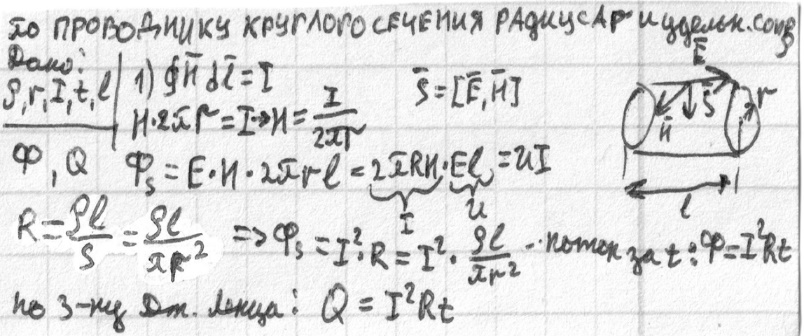 по проводнику круглого сечения радиуса r и удельн. сопр
Дано: 1) ∮H̄ dl̄ = I S̄ = [Ē, H̄] Ē
ρ, r, I, t, l H·2πr = I → H = I/2πr H̄ S̄ r
Φ, Q Φₛ = E·H·2πrl = 2πRH·El = UI
I U l
R = ρl/S = ρl/πr² => Φₛ = I²·R = I²·ρl/πr² - поток за t: Φ = I²Rt
по з-ну Дж. Ленца: Q = I²Rt